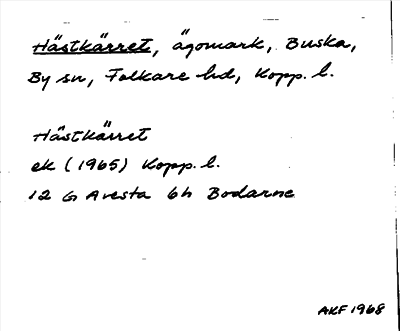 Hästkärret, ägomark, Buska,
By sn, Folkare hd, Kopp. l.
Hästkärret
ek (1965) Kopp. l.
12 G Avesta 6h Bodarne
AKF 1968